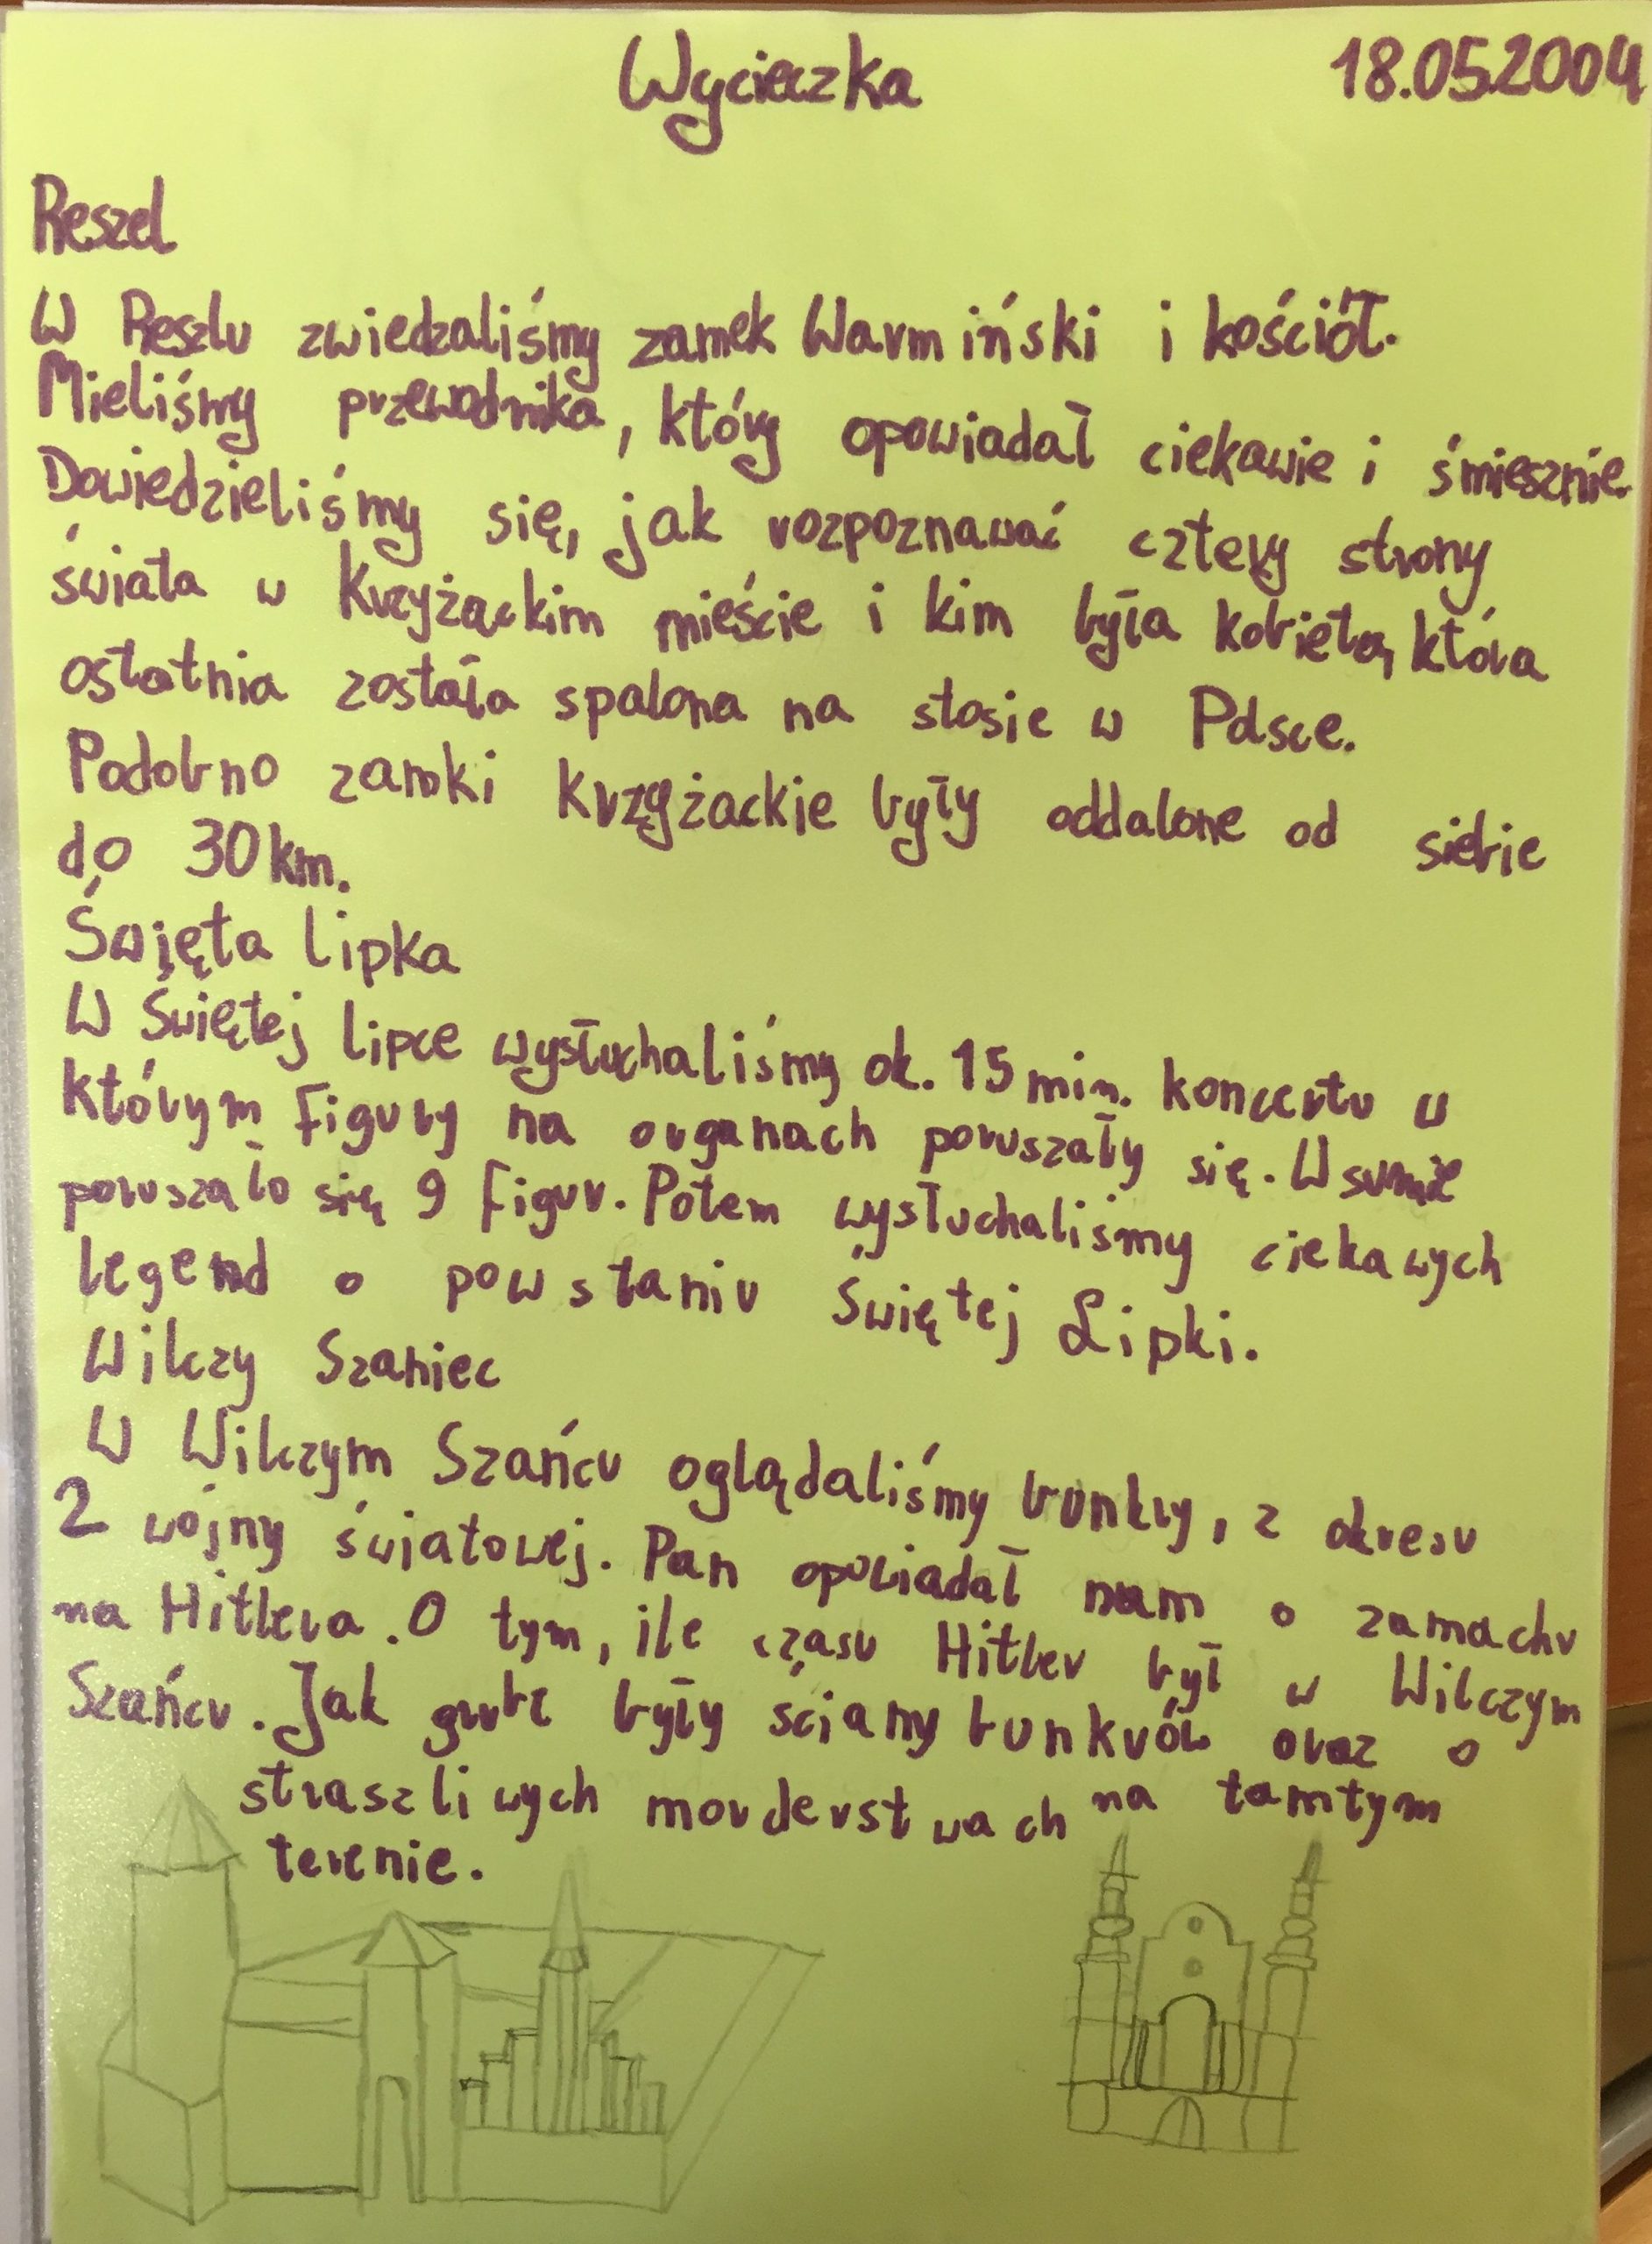 Wycieczka 18.05.2004
Reszel
W Reszlu zwiedzaliśmy zamek Warmiński i kościół.
Mieliśmy przewodnika, który opowiadał ciekawie i śmiesznie.
Dowiedzieliśmy się, jak rozpoznawać cztery strony
świata w Krzyżackim mieście i kim była kobieta, która
ostatnia została spalona na stosie w Polsce.
Podobno zamki krzyżackie były oddalone od siebie
do 30 km.
Święta Lipka
W Świętej Lipce wysłuchaliśmy ok. 15 min. koncertu w
którym figury na organach poruszały się. W sumie
poruszało się 9 figur. Potem wysłuchaliśmy ciekawych
legend o powstaniu Świętej Lipki.
Wilczy Szaniec
W Wilczym Szańcu oglądaliśmy bunkry, z okresu
2 wojny światowej. Pan opowiadał nam o zamachu
na Hitlera. O tym, ile czasu Hitler był w Wilczym
Szańcu. Jak grube były ściany bunkrów oraz o
straszliwych morderstwach na tamtym
terenie.